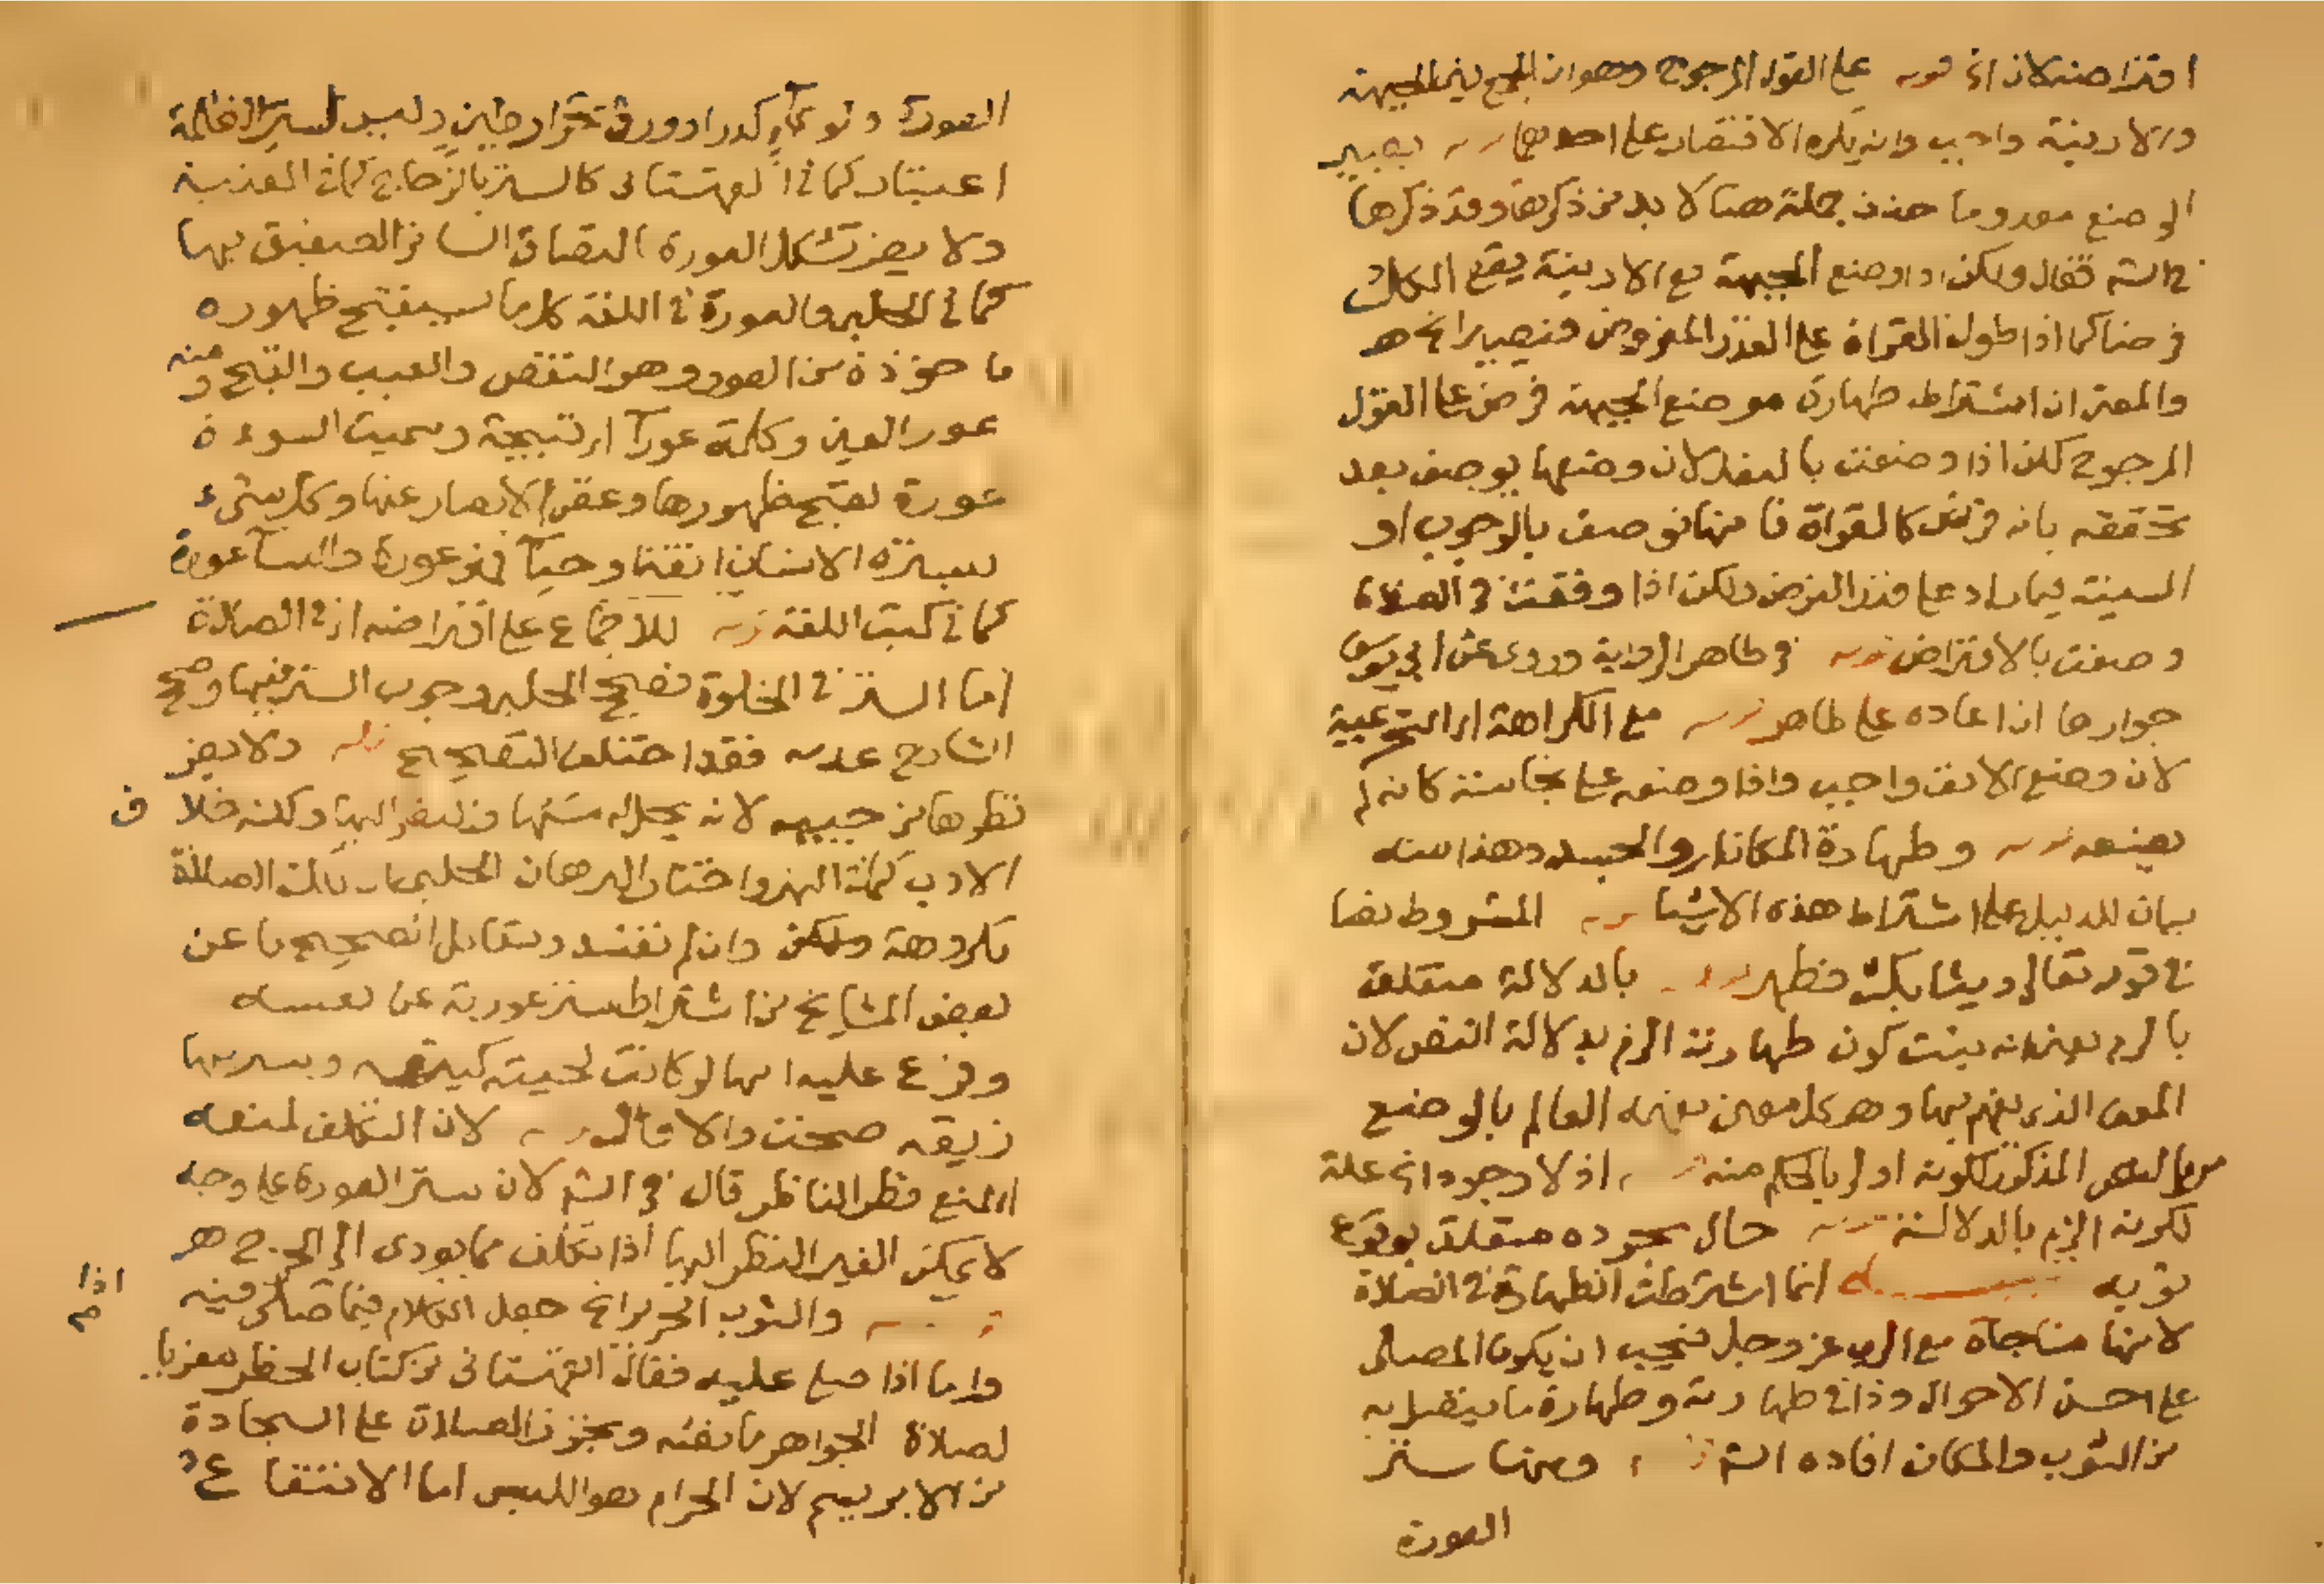 افتراضه لان اي قوله على القول المرجوح وهو ان الجمع بين الجبهة
والارنبة واجب وانه يكره الاقتصار على احدهما قوله يصير
الى صنع معدوما حذف جملة هنا لا بد من ذكرها وقد ذكرها
في الشر فقال ولكن اذا وضع الجبهة مع الارنبة يقع الكل
فرضا كما اذا طول القراة على القدر المفروض فيصير الخ هـ
والمعتبر ان اشتراط طهارة موضع الجبهة فرض على القول
المرجوح لكن اذا وضعت بالفعل لان وضعها يوصف بعد
تحققه بانه فرض كالقراة فانها توصف بالوجوب او
السنية فيما زاد على قدر الفرض ولكن اذا وقعت في الصلاة
وصفت بالافتراض قوله في ظاهر الرواية وروى عن ابي يوسف
جوازها اذا اعاده على طاهر قوله مع الكراهة اي التحريمية
لان وضع الانف واجب واذا وضعه على نجاسة كانه لم
يضعه قوله وطهارة المكان والجسد وهذا منه
بيان للدليل على اشتراط هذه الاشيا قوله المشروط نصا
في قوله تعالى وثيابك فطهر قوله بالدلالة متعلق
بالزم يعني انه يثبت كون طهارته الزم بدلالة النص لان
المعنى الذي يفهم بها وهو كل معنى يفهمه العالم بالوضع
من النص المذكور لكونه اولى بالحكم منه اذ لا وجود الخ علة
لكونه الزم بالدلالة قوله حال سجوده متعلق بوقوع
ثوبه انما اشترطت الطهارة في الصلاة
لانها مناجاة مع الرب عز وجل فيجب ان يكون المصلى
على احسن الاحوال وذا في طهارته وطهارة ما يتصل به
من الثوب والمكان افاده الشر قوله ومنها ستر
العورة
العورة ولو بماء كدر او ورق شجر او طين وليس لستر الظلمة
اعتبار كما في القهستاني كالستر بالزجاج كما في القنية
ولا يضر تشكل العورة التصاق الساتر الضيق بها
كما في الحلبي والعورة في اللغة كل ما يستقبح ظهوره
ماخوذة من العور وهو النقص والعيب والقبح ومنه
عور العين وكلمة عورآ اي قبيحة وسميت السوءة
عورة لقبح ظهورها وغض الابصار عنها وكل شيء
يستره الانسان انفة وحيآ فهو عورة والنسآ عورة
كما في كتب اللغة قوله للاجماع على افتراضه اي في الصلاة
اما الستر في الخلوة فصحح الحلبي وجوب الستر فيها وصحح
الشارح عدمه فقد اختلف التصحيح قوله ولا يضر
نظرها من جيبه لانه يحل له مسها والنظر اليها ولكنه خلاف
الادب كما في النهر واختار البرهان الحلبي ان تلك الصلاة
مكروهة وان لم تفسد ويقابل الصحيح ما عن
بعض المشايخ من اشتراط ستر عورته عن نفسه
وفرع عليه انها لو كانت لحيته كثيفة وستر بها
زيقه صحت والا فلا قوله لان التكلف لمنعه
اي لمنع نظر الناظر قال في الشر لان ستر العورة على وجه
لا يمكن الغير النظر اليها اذا تكلف مما يودى الى الحرج هـ
قوله والثوب الحرير الخ جعل الكلام فيما اذا صلى فيه
واما اذا صلى عليه فقال القهستاني من كتاب الحظر معزيا
لصلاة الجواهر ما نصه وتجوز الصلاة على السجادة
من الابريسم لان الحرام هو اللبس اما الانتفاع